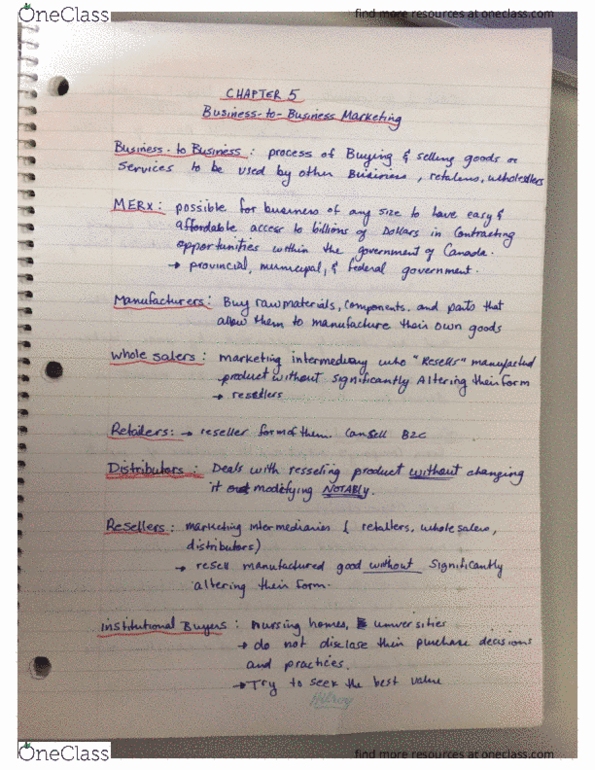 OneClass
find more resources at oneclass.com
CHAPTER 5
Business-to-Business Marketing
Business-to Business: process of Buying & selling goods or
services to be used by other Business, retalens, wholesllers
MERX: possible for business of any size to have easy &
affordable access to billions of Dollars in Contracting
opportunities within the government of Canada.
→ provincial, municipal, & federal government.
Manufacturers: Buy raw materials, components, and parts that
allow them to manufacture their own goods
whole salers: marketing intermediary who "Resells" manufacted
product without significantly Altering their form
→ resellers
Retailers: → reseller form of them. Can sell B2C
Distributors: Deals with resseling product without changing
it modifying NOTABLY.
Resellers: marketing intermediaries ( retailers, whole salers,
distributors)
→ resell manufactured good without significantly
altering their form.
institutional Buyers: Nursing homes, universities
→ do not disclase their purchase decisions
and practices.
→ Try to seek the best value
Hilroy
OneClass
find more resources at oneclass.com